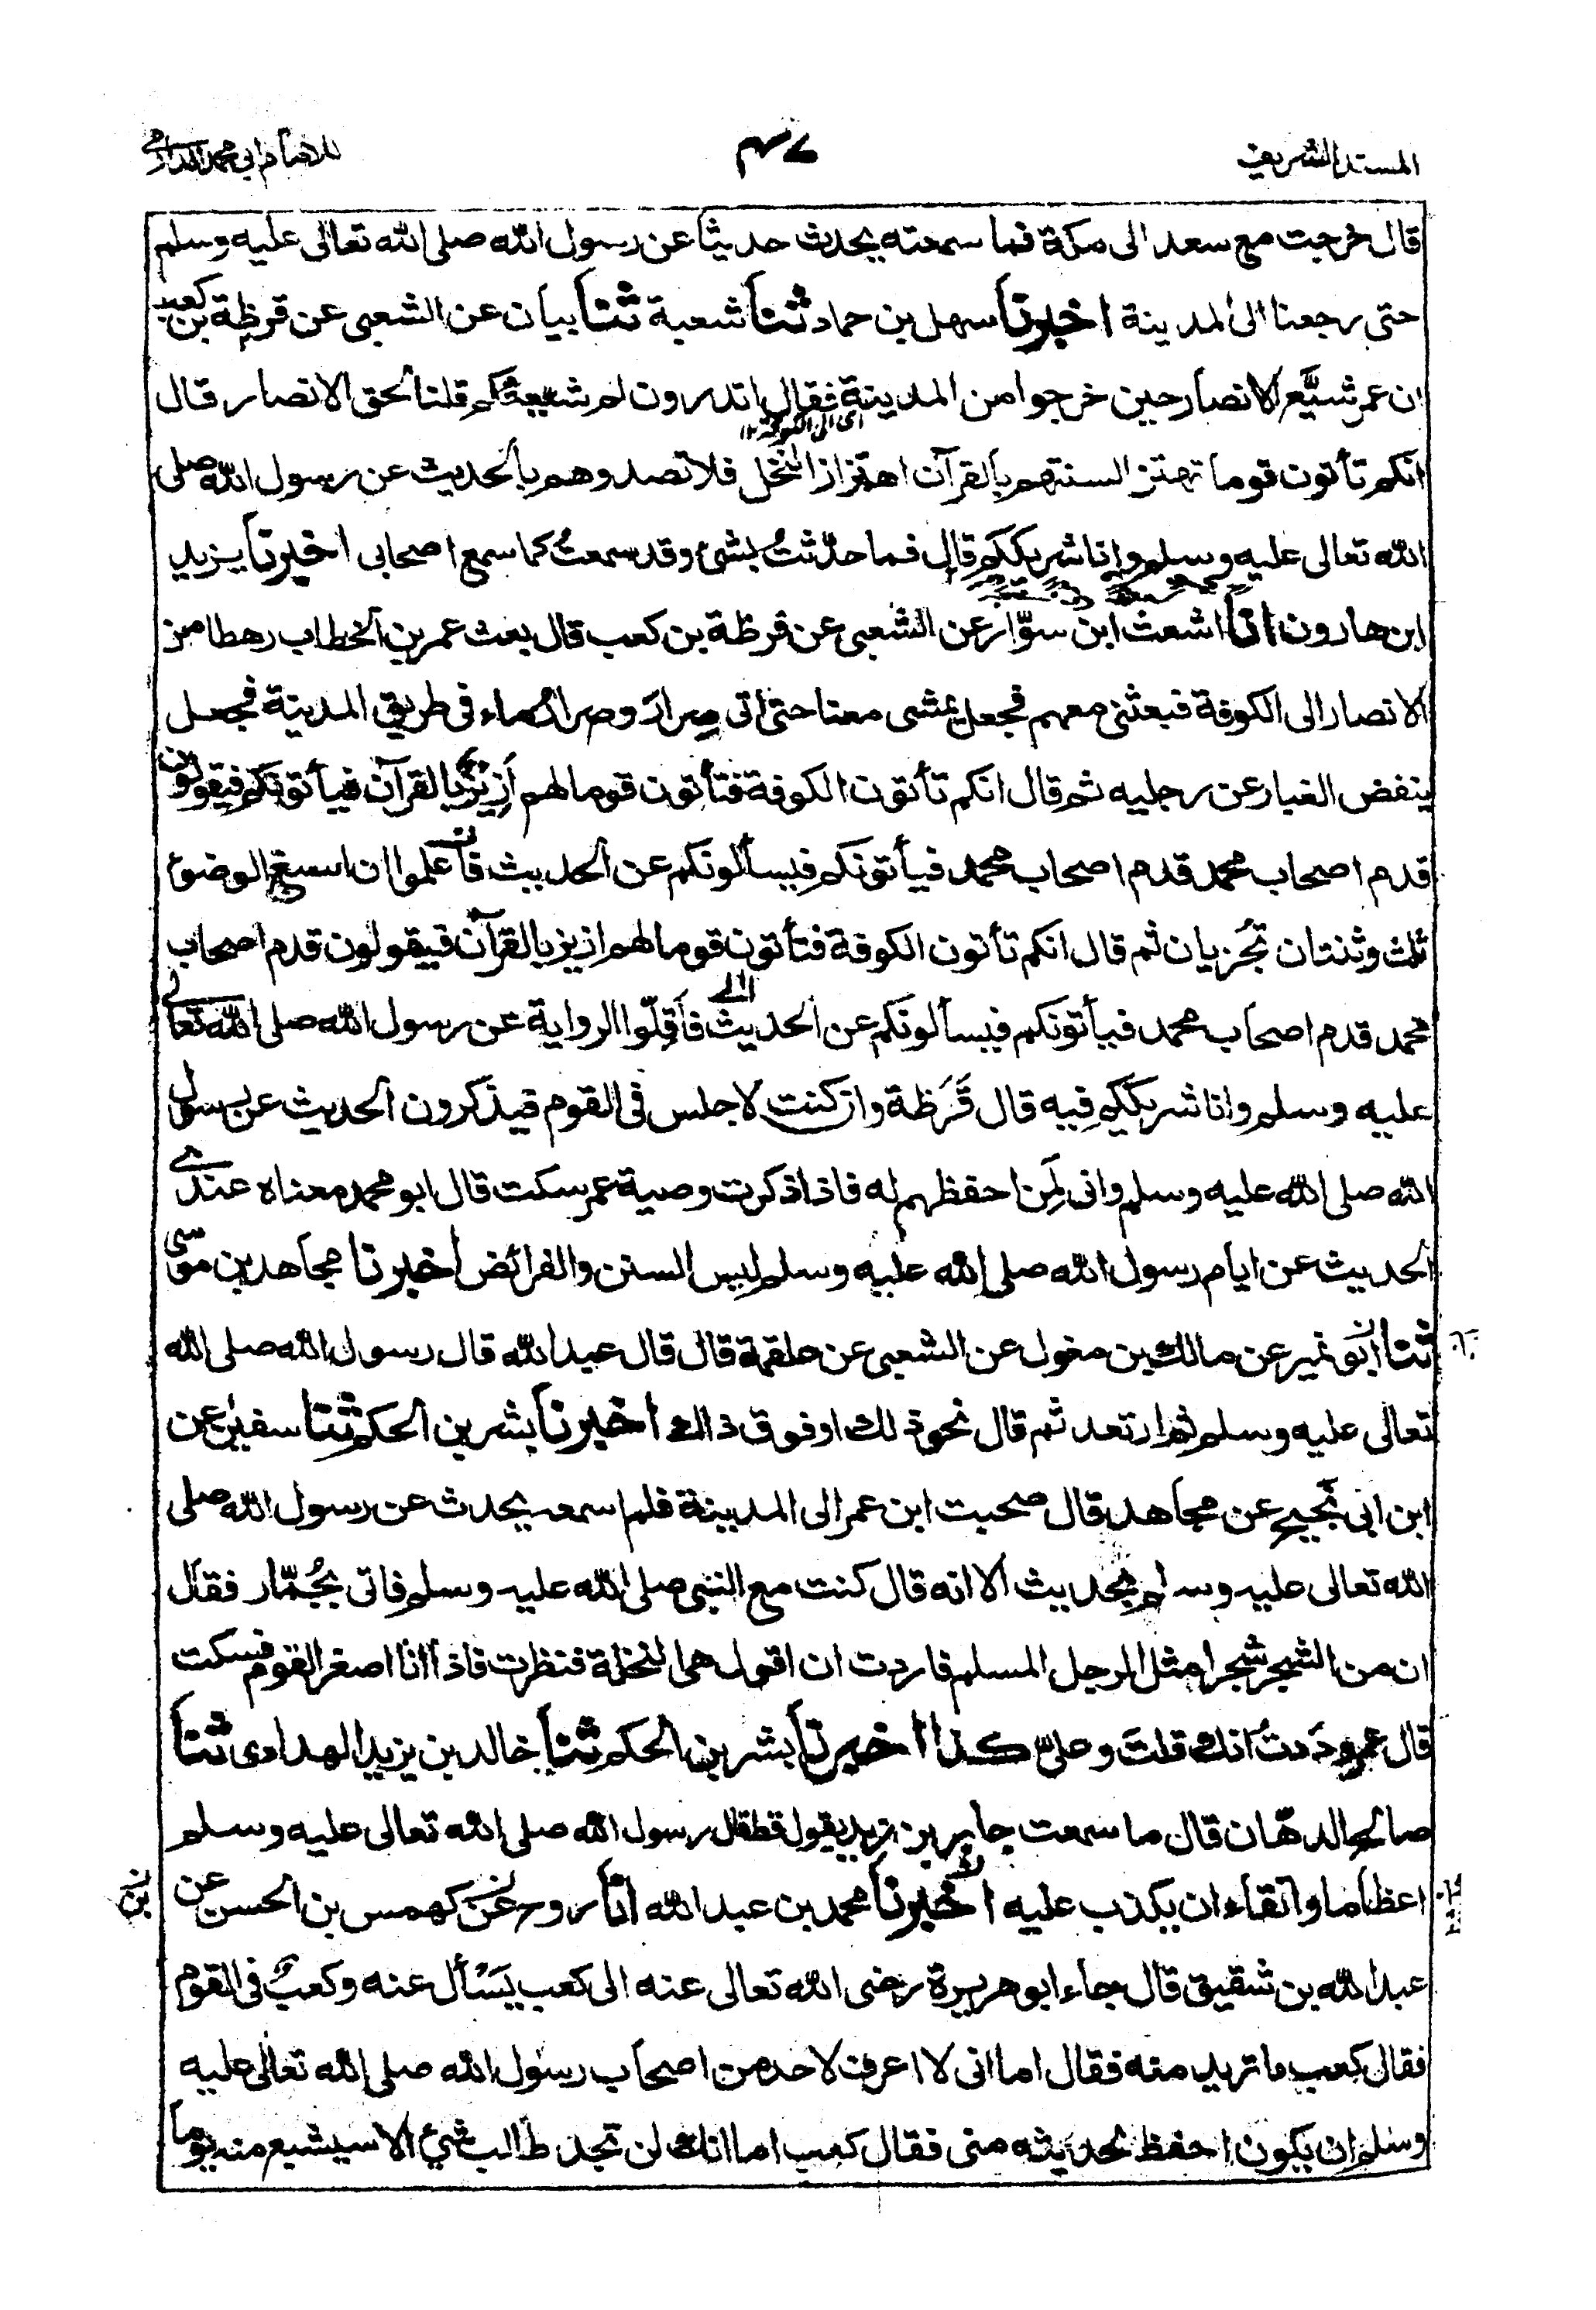 المسند الشريف
للامام ابي محمد الدارمي
قال خرجت مع سعد الى مكة فما سمعته يحدث حديثا عن رسول الله صلى الله تعالى عليه وسلم
حتى رجعنا الى المدينة اخبرنا سهل بن حماد ثنا شعبة ثنا بيان عن الشعبي عن قرظة بن كعب
ان عمر شيَّع الانصار حين خرجوا من المدينة فقال اتدرون لم شيعتكم قلنا لحق الانصار قال
اى الى الكوفة ١٢
انكم تأتون قوما تهتز السنتهم بالقرآن اهتزاز النخل فلا تصدوهم بالحديث عن رسول الله صلى
الله تعالى عليه وسلم وانا شريككم قال فما حدّثتُ بشئ وقد سمعتُ كما سمع اصحابى اخبرنا يزيد
ابن هارون انا اشعث ابن سوّار عن الشعبى عن قرظة بن كعب قال بعث عمر بن الخطاب رهطا من
الانصار الى الكوفة فبعثنى معهم فجعل يمشى معنا حتى اتى صرارَ وصرارُ ماء فى طريق المدينة فجعل
ينفض الغبار عن رجليه ثم قال انكم تأتون الكوفة فتأتون قوما لهم اَزِيْزٌ بالقرآن فيأتونكم فيقولون
قدم اصحاب محمد قدم اصحاب محمد فيأتونكم فيسألونكم عن الحديث فاعلموا ان اسبغ الوضوء
ثلث وثنتان تُجزيان ثم قال انكم تأتون الكوفة فتأتون قوما لهم ازيز بالقرآن فيقولون قدم اصحاب
محمد قدم اصحاب محمد فيأتونكم فيسألونكم عن الحديث فاَقِلّوا الرواية عن رسول الله صلى الله تعالى
عليه وسلم وانا شريككم فيه قال قَرَظة وان كنت لاجلس فى القوم فيذكرون الحديث عن رسول
الله صلى الله عليه وسلم وانى لَمِن احفظهم له فاذا ذكرت وصية عمر سكت قال ابو محمد معناه عندى
الحديث عن ايام رسول الله صلى الله عليه وسلم ليس السنن والفرائض اخبرنا مجاهد بن موسى
ثنا ابن نمير عن مالك بن مغول عن الشعبى عن علقمة قال قال عبد الله قال رسول الله صلى الله
تعالى عليه وسلم ثم ارتعد ثم قال نحو ذلك او فوق ذاك اخبرنا بشر بن الحكم ثنا سفين عن
ابن ابى نَجيح عن مجاهد قال صحبت ابن عمر الى المدينة فلم اسمعه يحدث عن رسول الله صلى
الله تعالى عليه وسلم بحديث الا انه قال كنت مع النبى صلى الله عليه وسلم فاتى بجُمّار فقال
ان من الشجر شجرا مثل الرجل المسلم فاردت ان اقول هى النخلة فنظرت فاذا انا اصغر القوم فسكت
قال عمر وددتُ انك قلتَ وعلىّ كذا اخبرنا بشر بن الحكم ثنا خالد بن يزيد الهدادى ثنا
صالح الدهّان قال ما سمعت جابر بن زيد يقول قط قال رسول الله صلى الله تعالى عليه وسلم
اعظاما واتقاء ان يكذب عليه اخبرنا محمد بن عبد الله انا روح عن كهمس بن الحسن عن
عبد الله بن شقيق قال جاء ابو هريرة رضى الله تعالى عنه الى كعب يَسْأل عنه وكعبٌ فى القوم
فقال كعب ما تريد منه فقال اما انى لا اعرف لاحد من اصحاب رسول الله صلى الله تعالى عليه
وسلم ان يكون احفظ لحديثه منى فقال كعب اما انك لن تجد طالب شئ الا سيشبع منه يوما